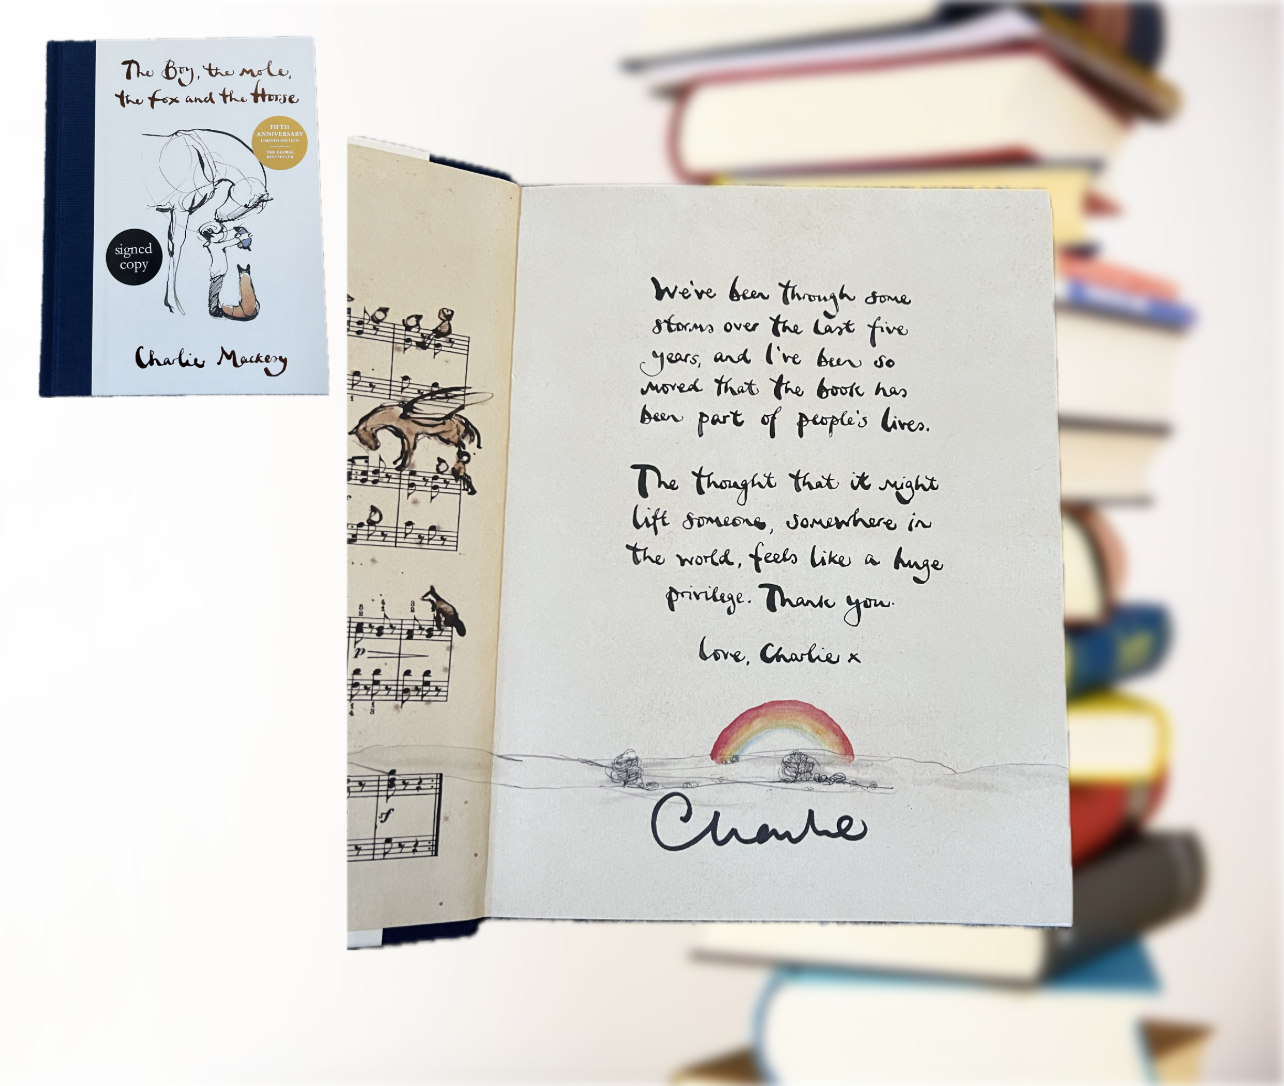 The Boy, the mole,
the fox and the Horse
FIFTH
ANNIVERSARY
LIMITED EDITION
THE GLOBAL
BESTSELLER
signed
copy
Charlie Mackesy
We've been through some
storms over the last five
years, and I've been so
moved that the book has
been part of people's lives.
The thought that it might
lift someone, somewhere in
the world, feels like a huge
privilege. Thank you.
Love, Charlie x
Charlie